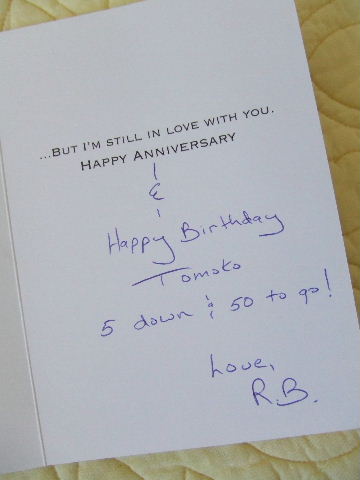 ...BUT I'M STILL IN LOVE WITH YOU.
HAPPY ANNIVERSARY
&
Happy Birthday
Tomoko
5 down & 50 to go!
Love,
R.B.